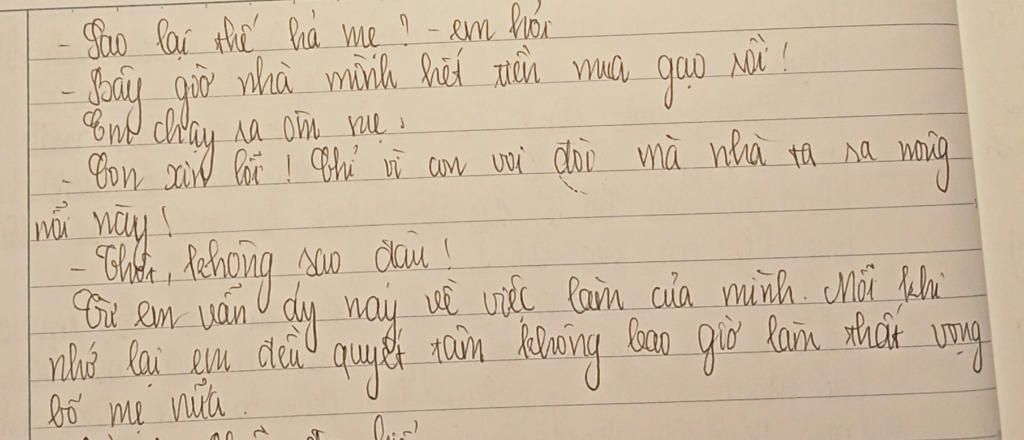 - Sao lại thế hả mẹ? - em hỏi
- Bây giờ nhà mình hết tiền mua gạo rồi!
Em chạy ra ôm mẹ.
- Con xin lỗi! Chỉ vì con voi đòi mà nhà ta ra nông
nỗi này!
- Thôi, không sao đâu!
Từ em vẫn dy nay về việc làm của mình. Mỗi khi
nhớ lại em đều quyết tâm không bao giờ làm thất vọng
bố mẹ nữa.